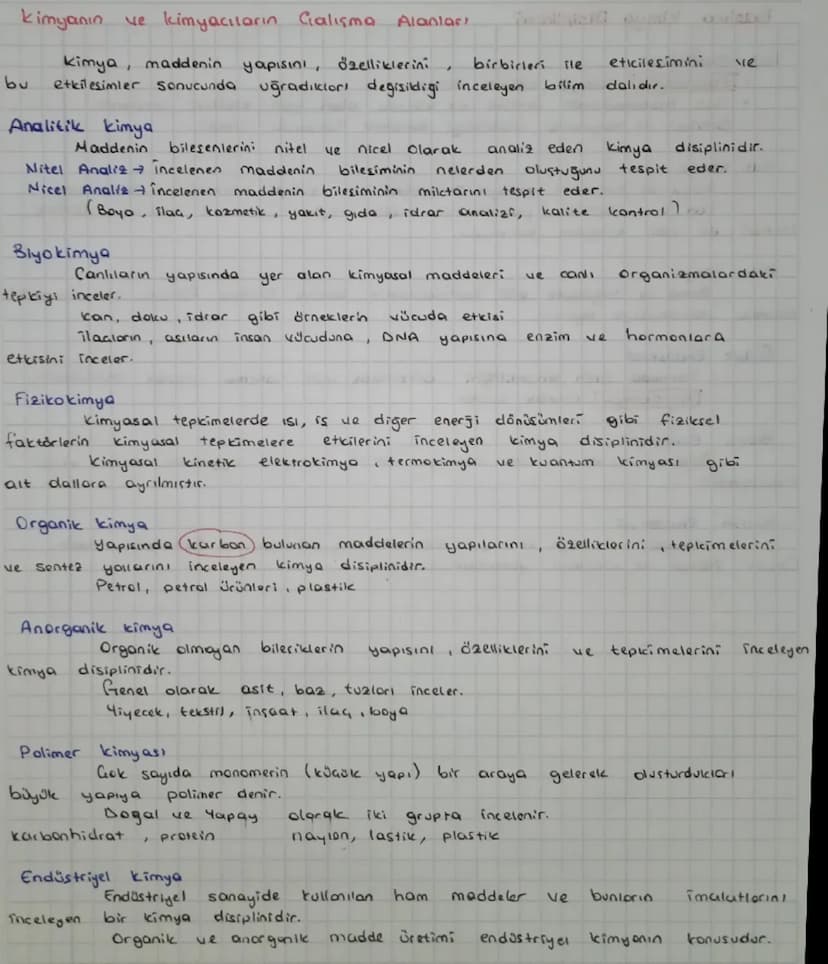 Kimyanın ve kimyacıların Çalışma Alanları
Kimya, maddenin yapısını, özelliklerini, birbirleri ile etkilesimini ve
bu etkilesimler sonucunda uğradıkları değişikliği inceleyen bilim dalıdır.
Analitik kimya
Maddenin bileşenlerini nitel ve nicel olarak analiz eden kimya disiplinidir.
Nitel Analiz → incelenen maddenin bileşiminin nelerden oluştuğunu tespit eder.
Nicel Analiz → incelenen maddenin bileşiminin miktarını tespit eder.
(Boya, ilaç, kozmetik, yakıt, gıda, idrar analizi, kalite kontrol)
Biyokimya
Canlıların yapısında yer alan kimyasal maddeleri ve canlı organizmalardaki
tepkiyi inceler.
Kan, doku, idrar gibi örneklerin vücuda etkisi
ilaçların, aşıların insan vücuduna, DNA yapısına enzim ve hormonlara
etkisini inceler.
Fizikokimya
Kimyasal tepkimelerde ısı, iş ve diğer enerji dönüşümleri gibi fiziksel
faktörlerin kimyasal tepkimelere etkilerini inceleyen kimya disiplinidir.
Kimyasal kinetik elektrokimya, termokimya ve kuantum kimyası gibi
alt dallara ayrılmıştır.
Organik kimya
Yapısında karbon bulunan maddelerin yapılarını, özelliklerini, tepkimelerini
ve sentez yollarını inceleyen kimya disiplinidir.
Petrol, petrol ürünleri, plastik
Anorganik kimya
Organik olmayan bileşiklerin yapısını, özelliklerini ve tepkimelerini inceleyen
kimya disiplinidir.
Genel olarak asit, baz, tuzları inceler.
Yiyecek, tekstil, inşaat, ilaç, boya
Polimer kimyası
Çok sayıda monomerin (küçük yapı) bir araya gelerek oluşturdukları
büyük yapıya polimer denir.
Doğal ve Yapay olarak iki grupta incelenir.
karbonhidrat, protein naylon, lastik, plastik
Endüstriyel kimya
Endüstriyel sanayide kullanılan ham maddeler ve bunların imalatlarını
inceleyen bir kimya disiplinidir.
Organik ve anorganik madde üretimi endüstriyel kimyanın konusudur.